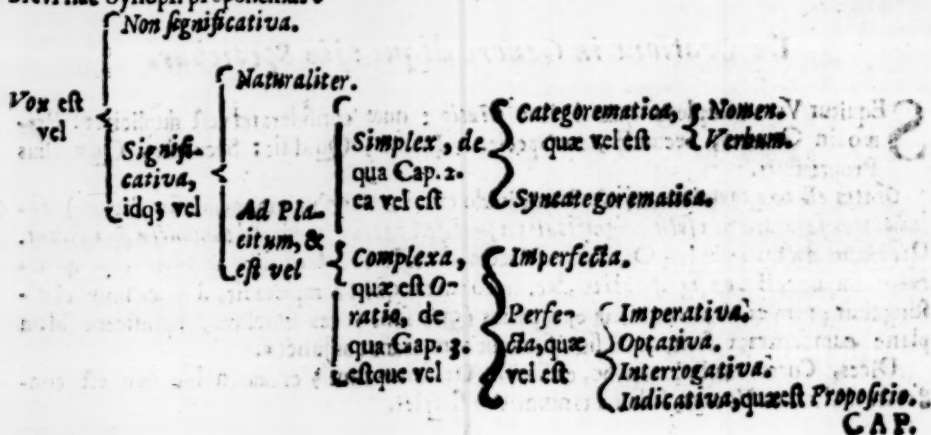 Non significativa.
Vox est vel
Significativa, idq; vel
Naturaliter.
Ad Placitum, & est vel
Simplex, de
qua Cap. 2.
ea vel est
Categorematica,
quæ vel est
Nomen.
Verbum.
Syncategorematica.
Complexa,
quæ est O-
ratio, de
qua Cap. 3.
estque vel
Imperfecta.
Perfe-
cta, quæ
vel est
Imperativa.
Optativa.
Interrogativa.
Indicativa, quæ est Propositio.
CAP.